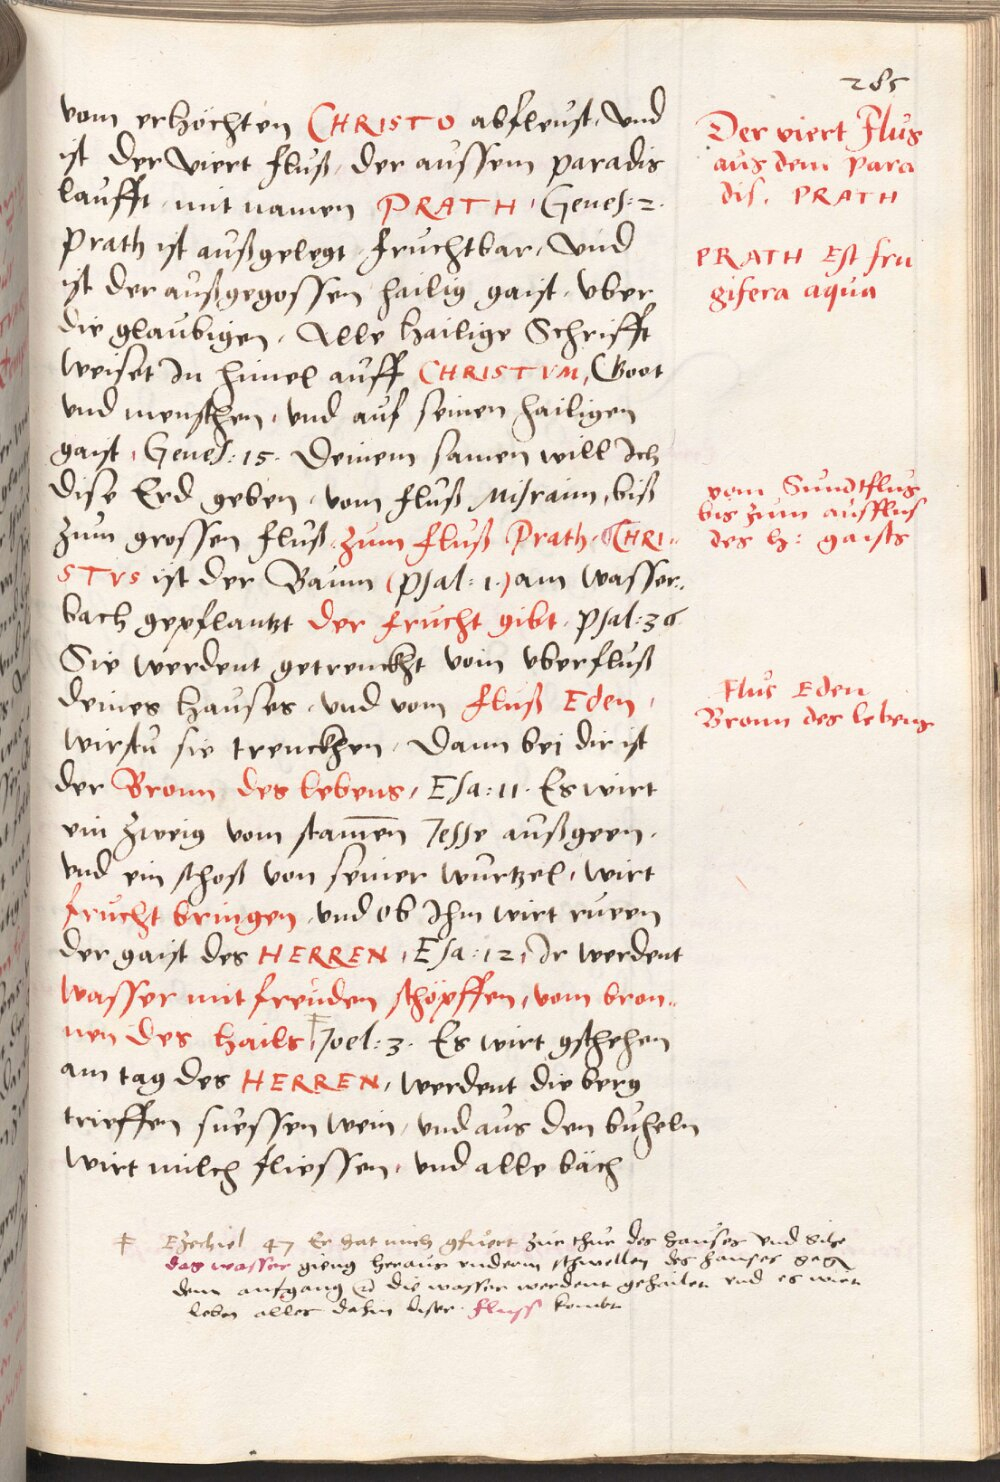 285
vom erhöchten CHRISTO abfleust, Und
ist der Viert fluß, der aussem paradis
laufft, mit namen PRATH, Genes: 2.
Prath ist außgelegt, fruchtbar, Und
ist der außgegossen hailig gaist, vber
die glaubigen, Alle hailige Schrifft
weiset In himel auff CHRISTVM, Goot
vnd menschen, vnd auf seinen hailigen
gaist, Genes: 15. Deinem samen will Ich
dise Erd geben, vom fluß Misraim, biß
zum grossen fluß, zum fluß Prath. CHRI-
STVS ist der Baum (Psal: 1.) am wasser-
bach gepflantzt der frucht gibt. Psal: 36
Sie werdent getrenckht vom vberfluß
deines hauses, vnd vom fluß Eden,
wirstu sie trenckhen, Dann bei dir ist
der Bronn des lebens, Esa: 11. Es wirt
ein zweig vom stam̅en Jesse außgeen,
vnd ein schoß von seiner wurtzel, wirt
frucht bringen, vnd ob Ihm wirt rueen
der gaist des HERREN, Esa: 12, Ir werdent
wasser mit freuden schöpffen, vom bron-
nen des hails, Joel: 3. Es wirt gschehen
am tag des HERREN, werdent die berg
trieffen suessen wein, vnd aus den buheln
wirt milch fliessen, vnd alle bäch
Der viert Flus
aus dem Para
dis. PRATH
PRATH Est fru
gifera aqua
vom Sundtflus
bis zum ausflus
des h: gaists
Flus Eden
Bronn des lebens
Ezechiel 47 Er hat mich gfuert zur thur des hauses vnd sihe
das wasser gieng heraus vnderm schwellen des hauses geg
dem aufgang die wasser werdent gehailet vnd es wirt
leben alles dahin diser fluss kombt